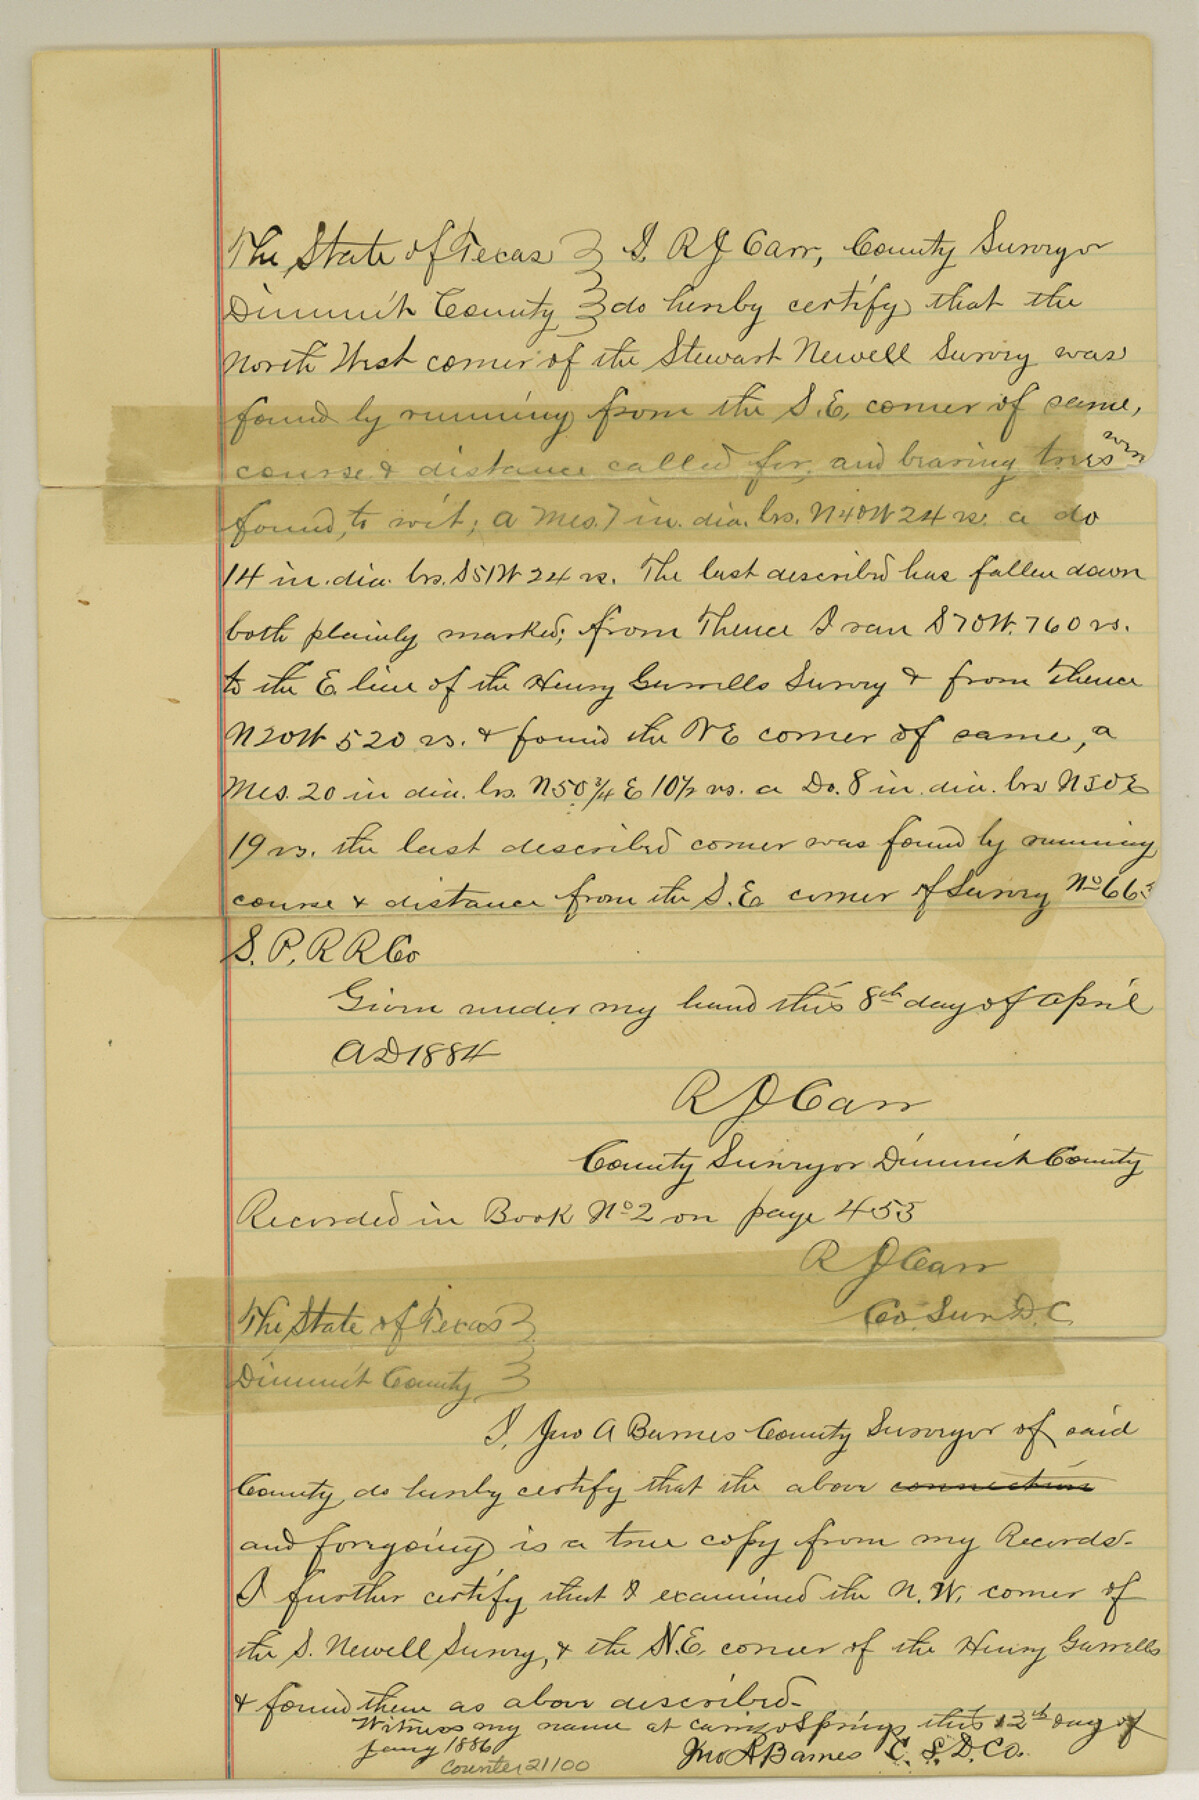 The State of Texas } I, R J Carr, County Surveyor
Dimmit County } do hereby certify that the
North West corner of the Stewart Newell Survey was
found by running from the S.E. corner of same,
course & distance called for, and bearing trees were
found, to wit; a Mes. 7 in. dia. brs. N40W 24 vs. a do
14 in. dia. brs. S51W 24 vs. The last described has fallen down
both plainly marked; from Thence I ran S70W. 760 vs.
to the E. line of the Henry Gurrells Survey & from thence
N20W 520 vs. & found the NE corner of same, a
Mes. 20 in dia. brs. N50 3/4 E 10 1/2 vs. a Do. 8 in. dia. brs N50E
19 vs. the last described corner was found by running
course & distance from the S.E. corner of Survey No 663
S. P. R R Co
Given under my hand this 8th day of April
AD 1884
R J Carr
County Surveyor Dimmit County
Recorded in Book No 2 on page 455
R J Carr
Co. Sur. D. C.
The State of Texas }
Dimmit County }
I, Jno A Barnes County Surveyor of said
County do hereby certify that the above connection
and foregoing is a true copy from my Records.
I further certify that I examined the N. W. corner of
the S. Newell Survey, & the N.E. corner of the Henry Gurrells
& found them as above described.
Witness my name at Carrizo Springs this 12th day of
Jany 1886
Jno A Barnes C. S. D. Co.
counter 21100